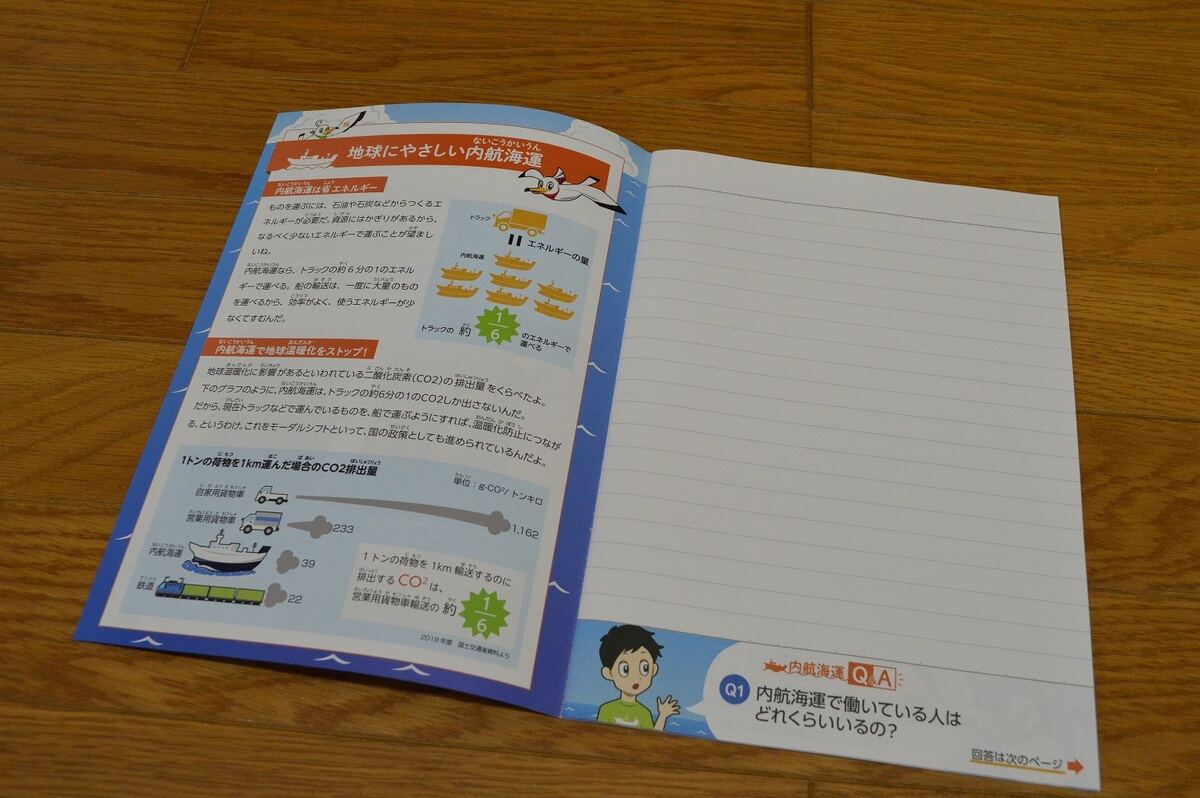 ないこうかいうん
地球にやさしい内航海運
ないこうかいうん しょう
内航海運は省エネルギー
ものを運ぶには、石油や石炭などからつくるエ
ネルギーが必要だ。資源にはかぎりがあるから、
なるべく少ないエネルギーで運ぶことが望まし
いね。
内航海運なら、トラックの約6分の1のエネル
ギーで運べる。船の輸送は、一度に大量のもの
を運べるから、効率がよく、使うエネルギーが少
なくてすむんだ。
トラック
エネルギーの量
内航海運
トラックの 約 1/6 のエネルギーで
運べる
ないこうかいうん おんだんか
内航海運で地球温暖化をストップ!
地球温暖化に影響があるといわれている二酸化炭素(CO2)の排出量をくらべたよ。
下のグラフのように、内航海運は、トラックの約6分の1のCO2しか出さないんだ。
だから、現在トラックなどで運んでいるものを、船で運ぶようにすれば、温暖化防止につなが
る、というわけ。これをモーダルシフトといって、国の政策としても進められているんだよ。
1トンの荷物を1km運んだ場合のCO2排出量
単位:g-CO²/トンキロ
自家用貨物車 1,162
営業用貨物車 233
内航海運 39
鉄道 22
1トンの荷物を1km輸送するのに
排出するCO²は、
営業用貨物車輸送の 約 1/6
2018年度 国土交通省資料より
内航海運 Q&A
Q1 内航海運で働いている人は
どれくらいいるの?
回答は次のページ